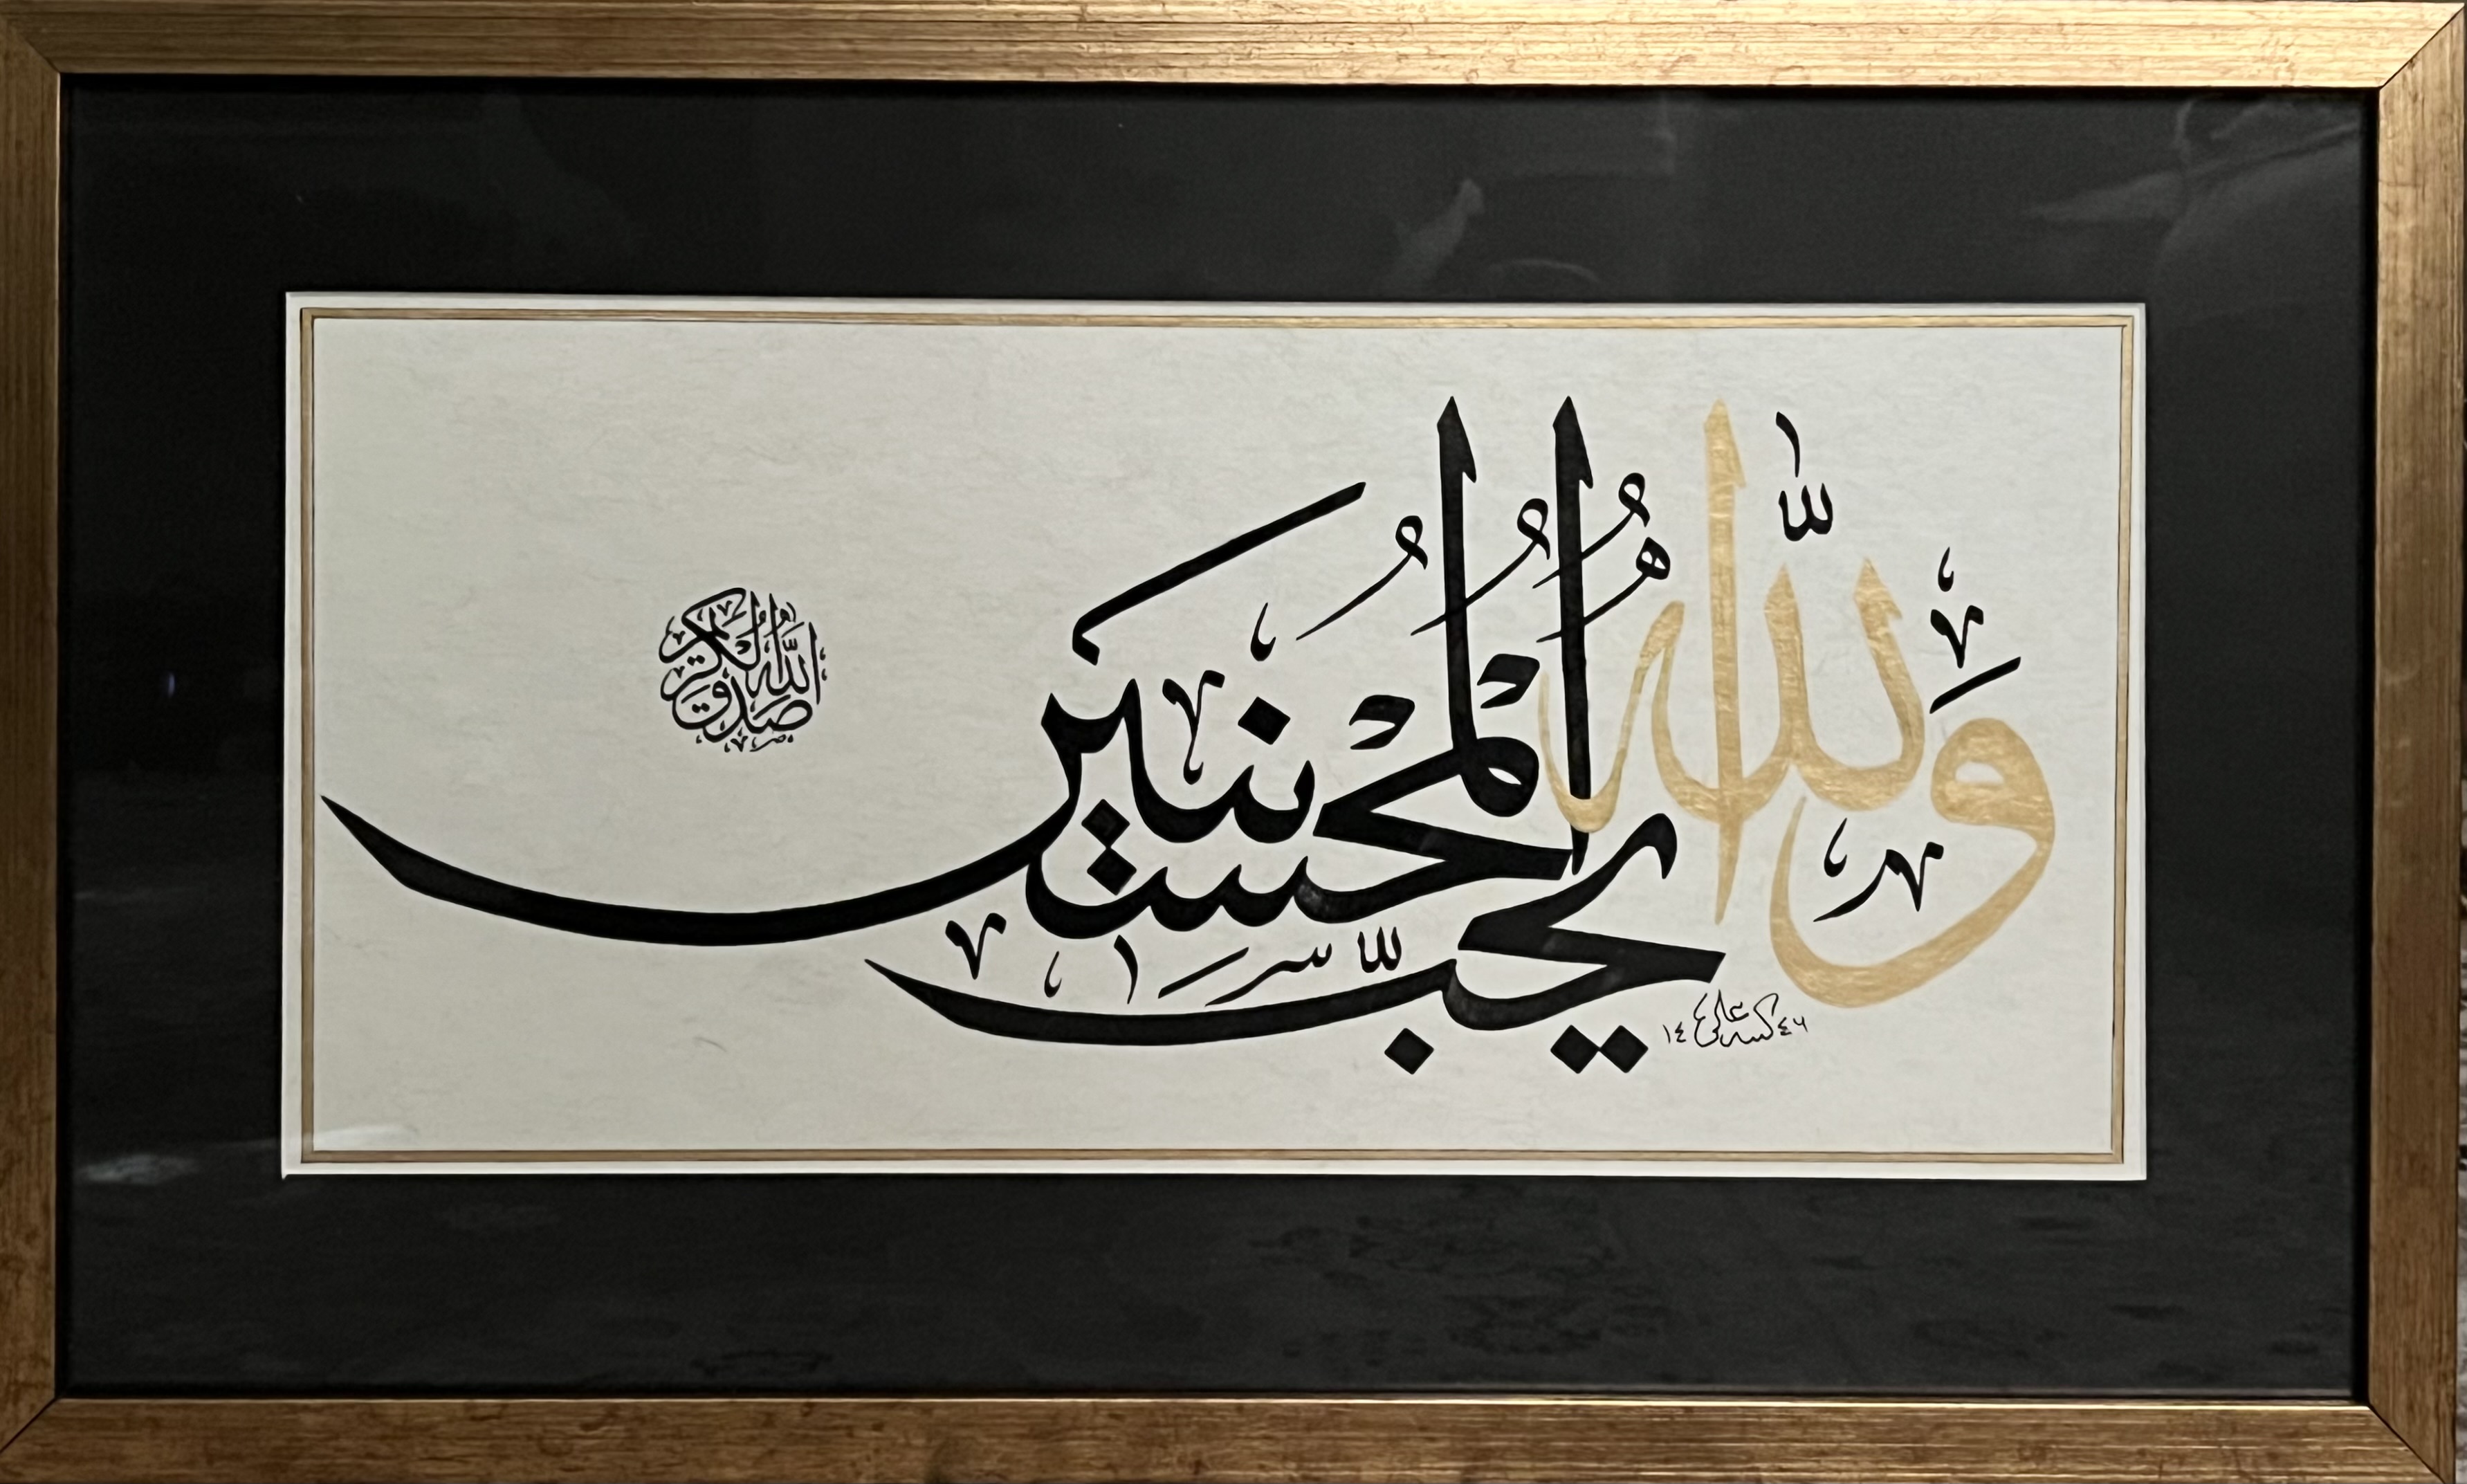 وَاللّٰهُ يُحِبُّ الْمُحْسِنِينَ
صدق الله الكريم
١٤٤٦